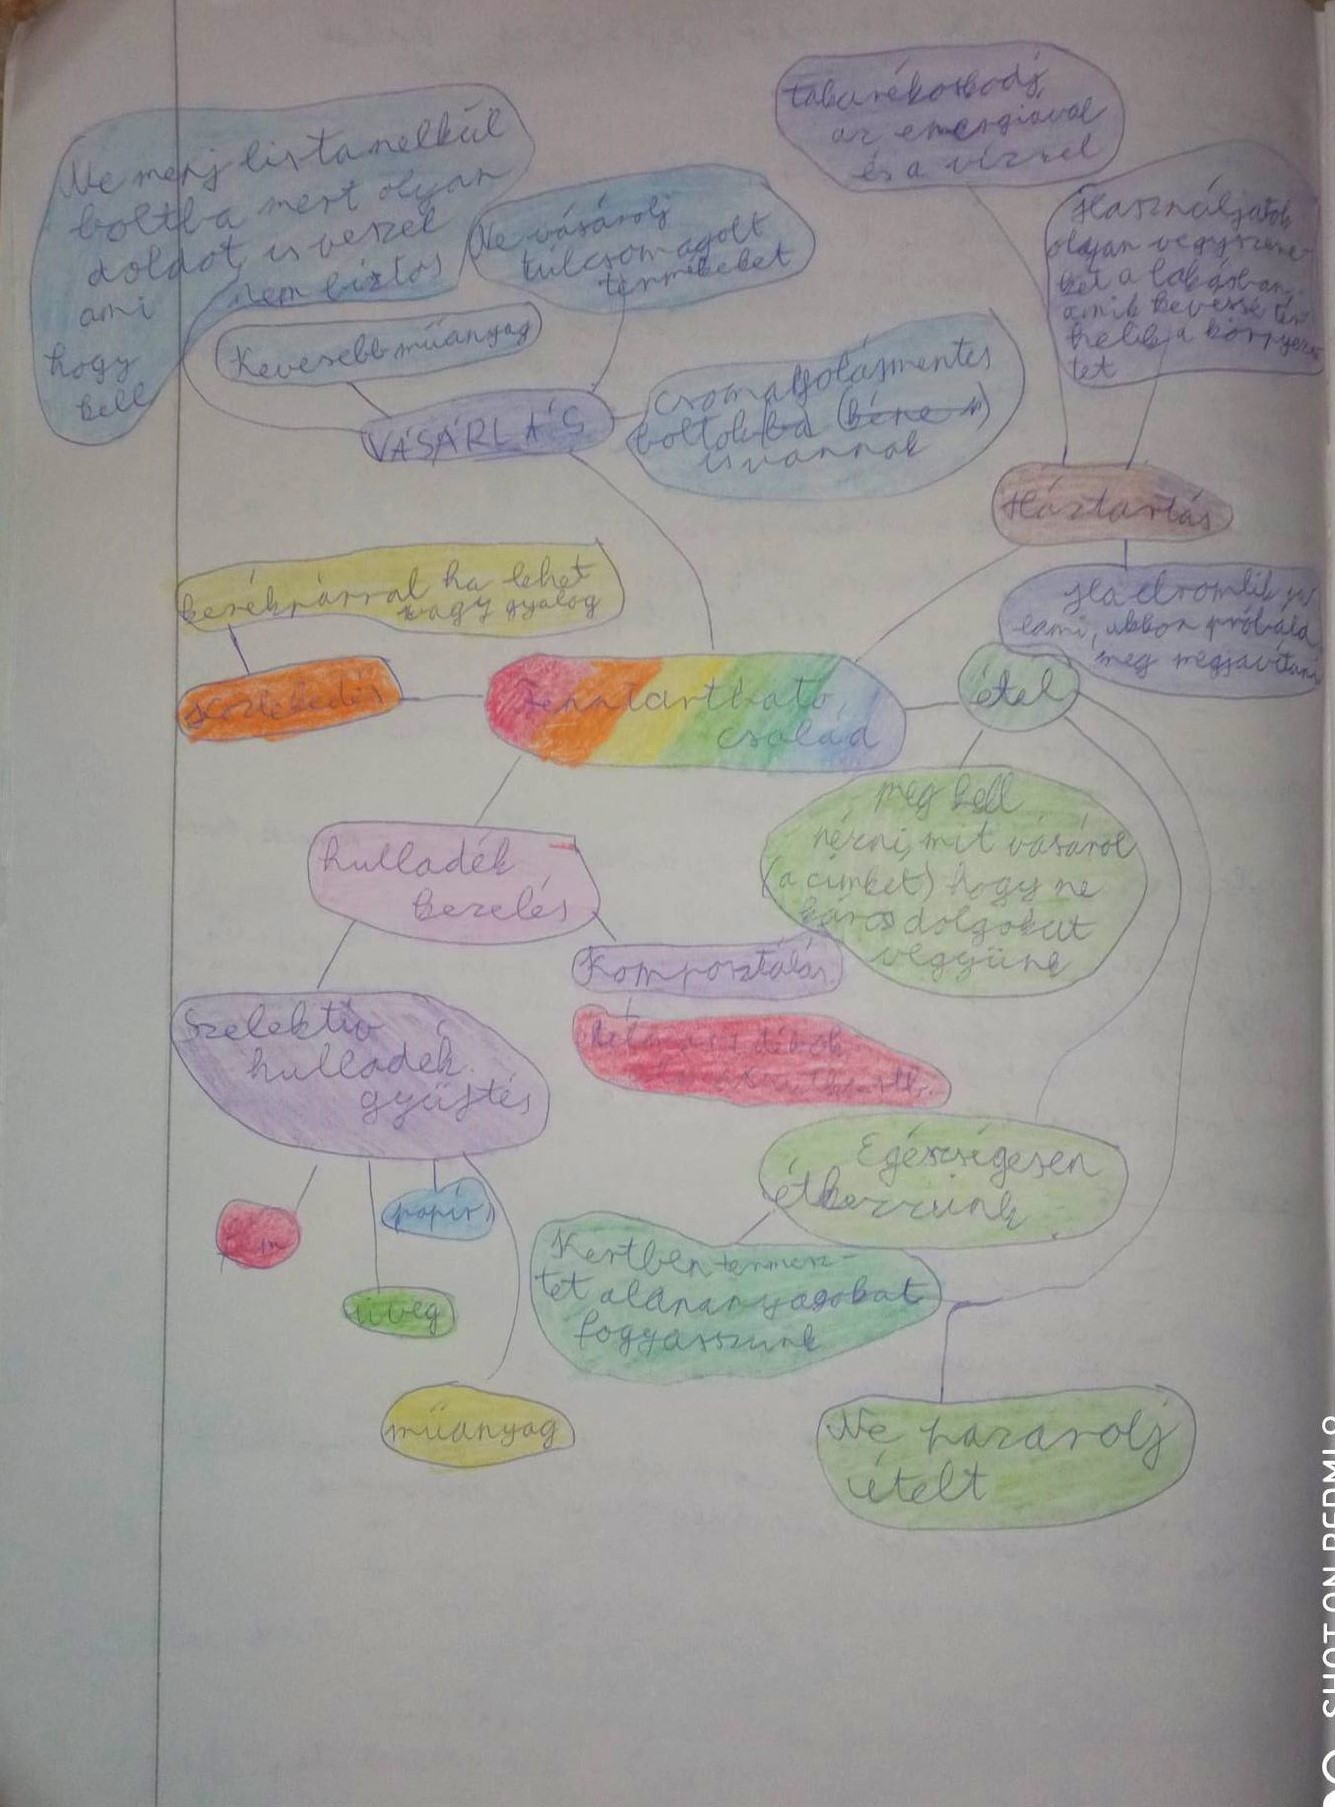 takarékoskodj
az energiával
és a vízzel
Ne menj lista nelkül
boltba mert olyan
doldot is veszel
ami nem biztos
hogy
kell
Ne vásárolj
túlcsomagolt
termékeket
Használjatok
olyan vegyszere-
ket a lakásban,
amik kevessé ter
helik a környeze
tet
Kevesebb műanyag
VÁSÁRLÁS
csomagolásmentes
boltokba
is vannak
Háztartás
kerékpárral ha lehet
vagy gyalog
Ha elromlik va
lami, akkor próbáld
meg megjavítani
közlekedés
Fenntartható
család
étel
meg kell
nézni, mit vásárol
(a címket) hogy ne
káros dolgokat
vegyünk
hulladék
kezelés
Komposztálás
Szelektív
hulladék
gyűjtés
Egészségesen
étkezzünk
papír
Kertben termesz-
tet alapanyagokat
fogyasszunk
üveg
műanyag
Ne pazarolj
ételt
SHOT ON REDMI 8